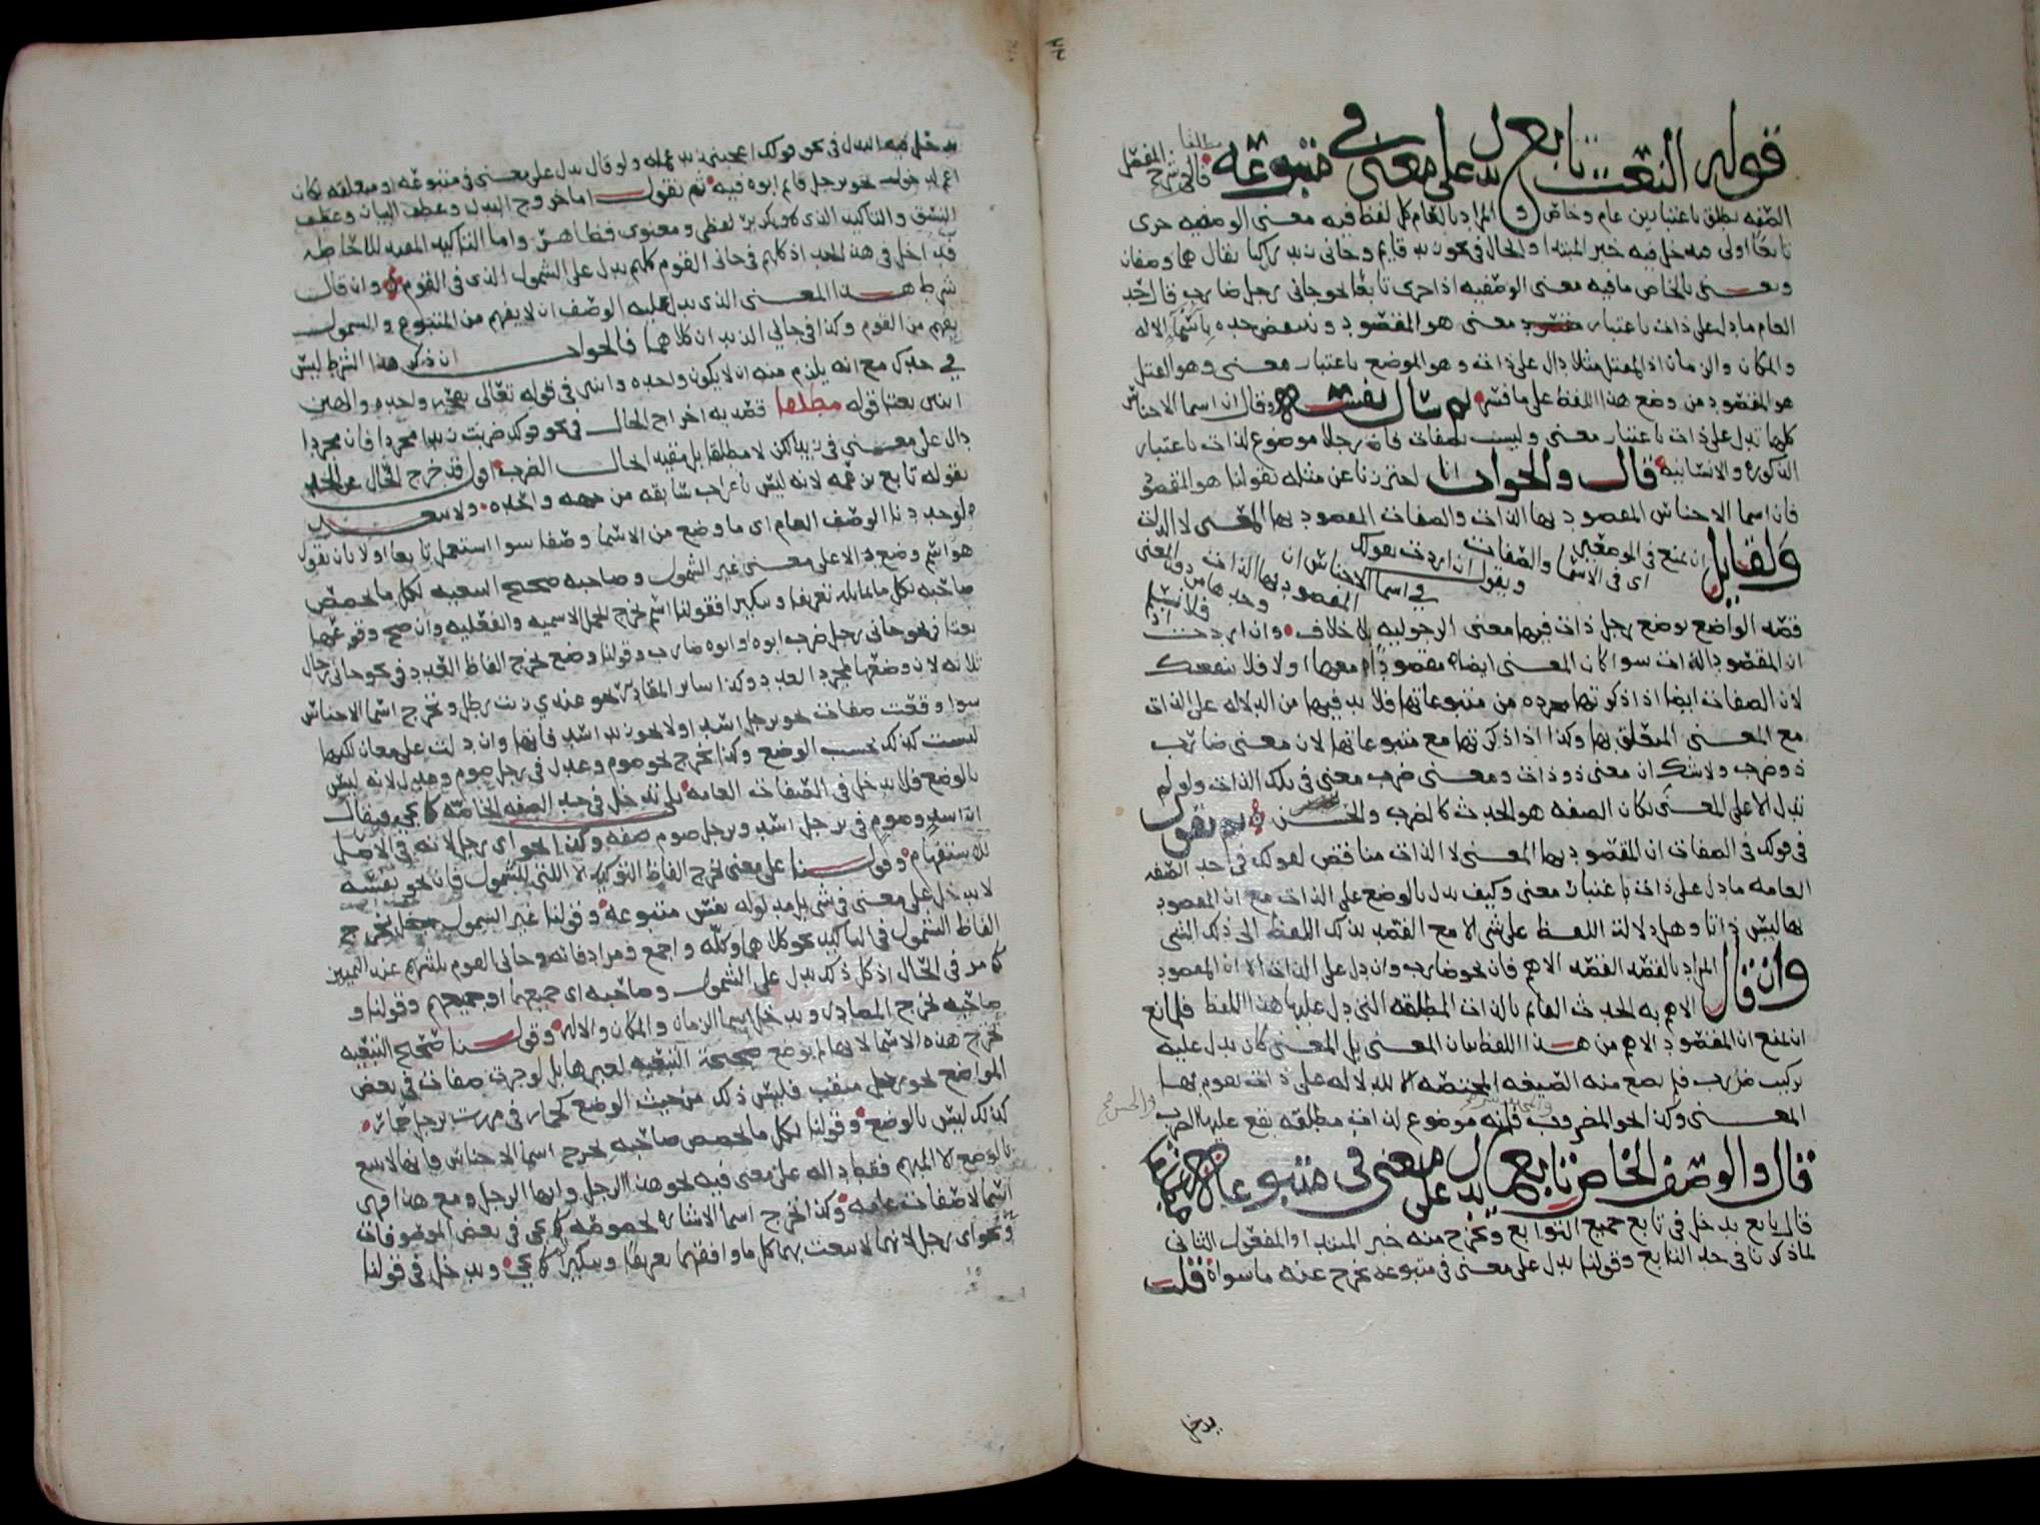 قوله النعت تابع يدل على معنى في متبوعه مطلقا قال في شرح المفصل
الصفه تطلق باعتبارين عام وخاص والمراد بالعام كل لفظ فيه معنى الوصفيه جرى
تابعا اولى فيدخل فيه خبر المبتدا والحال في نحو زيد قايم وجاني زيد راكبا يقال هما وصفان
ويعنى بالخاص ما فيه معنى الوصفيه اذا جرى تابعا نحو جاني رجل ضارب قال حد
العام ما دل على ذات باعتبار معنى هو المقصود وينتقض حده باسما الاله
والمكان والزمان اذ المقتل مثلا دال على ذات وهو الموضع باعتبار معنى وهو القتل
هو المقصود من وضع هذا اللفظ على ما فسر ثم سال نفسه وقال ان اسما الاجناس
كلها تدل على ذات باعتبار معنى وليست بصفات فان رجلا موضوع لذات باعتبار
الذكوره والانسانيه قال والجواب انا احترزنا عن مثله بقولنا هو المقصود
فان اسما الاجناس المقصود بها الذات والصفات المقصود بها المعنى لا الذات
ولقايل ان يمنع في الموضعين اى في الاسما والصفات ويقول ان اردت بقولك
في اسما الاجناس ان المقصود بها الذات وحدها من دون المعنى فلا نسلم اذ
قصد الواضع بوضع رجل ذات فيها معنى الرجوليه بلا خلاف وان اردت
ان المقصود الذات سوا كان المعنى ايضا مقصودا معها او لا فلا ينفعك
لان الصفات ايضا اذا ذكرتها مجرده من متبوعاتها فلا بد فيها من الدلاله على الذات
مع المعنى المتعلق بها وكذا اذا ذكرتها مع متبوعاتها لان معنى ضارب
ذو ضرب ولا شك ان معنى ذو ذات ومعنى ضرب معنى في تلك الذات ولو لم
تدل الا على المعنى لكان الصفه هو الحدث كالضرب والحسن ثم نقول
في قولك في الصفات ان المقصود بها المعنى لا الذات مناقض لقولك في حد الصفه
العامه ما دل على ذات باعتبار معنى وكيف يدل بالوضع على الذات مع ان المقصود
بها ليس ذاتا وهل دلالة اللفظ على شى الا مع القصد بذلك اللفظ الى ذلك الشى
وان قال المراد بالقصد القصد الاهم فان نحو ضارب وان دل على الذات الا ان المقصود
الاهم به الحدث القايم بالذات المطلقه التي دل عليها هذا اللفظ فلمانع
ان يمنع ان المقصود الاهم من هذا اللفظ بيان المعنى بل المعنى كان يدل عليه
تركيب ضرب فلم يصغ منه الصيغه المختصه الا للدلاله على ذات يقوم بها
المعنى وكذا نحو المضروب فانه موضوع لذات مطلقه يقع عليها الضرب
قال والوصف الخاص تابع يدل على معنى في متبوعه
قال تابع يدخل في تابع جميع التوابع ويخرج منه خبر المبتدا والمفعول الثاني
لما ذكرنا في حد التابع وقولنا يدل على معنى في متبوعه يخرج عنه ما سواه قلت
يدخل
يدخل فيه البدل في نحو قولك اعجبني زيد علمه ولو قال يدل على معنى في متبوعه او متعلقه لكان
اعم لدخول نحو برجل قايم ابوه فيه ثم نقول اما خروج البدل وعطف البيان وعطف
النسق والتاكيد الذي هو تكرير لفظي ومعنوى فظاهر واما التاكيد المفيد للاحاطه
فداخل في هذا الحد اذ كلهم في جاني القوم كلهم يدل على الشمول الذى في القوم وان قال
شرط هذا المعنى الذى يدل عليه الوصف ان لا يفهم من المتبوع والشمول
يفهم من القوم وكذا في جاني الزيدان كلاهما فالجواب ان ذكر هذا الشرط ليس
في حدك مع انه يلزم منه ان لا يكون واحده واثنين في قوله تعالى نفخه واحده والهين
اثنين نعتا قوله مطلقا قصد به اخراج الحال في نحو قولك ضربت زيدا مجردا فان مجردا
دال على معنى في زيد لكن لا مطلقا بل مقيد بحال الضرب اقول قد خرج الحال عن الحد
بقوله تابع لانه ليس باعراب سابقه من جهه واحده ولا يبعد
لو حددنا الوصف العام اى ما وضع من الاسما وصفا سوا استعمل تابعا او لا بان نقول
هو اسم وضع دالا على معنى غير الشمول وصاحبه صحيح التبعيه لكل ما يخصص
صاحبه بعتا في نحو جاني رجل ضرب ابوه وابوه ضارب وقولنا وضع يخرج الفاظ العدد في نحو جاني رجال
ثلاثه لان وضعها لمجرد العدد وكذا ساير المقادير نحو عندي زيت رطل ويخرج اسما الاجناس
سوا وقعت صفات نحو برجل اسد او لا نحو زيد اسد فانها وان دلت على معان لكنها
ليست كذلك بحسب الوضع وكذا يخرج نحو صوم وعدل في رجل صوم وعدل لانه ليس
بالوضع فلا يدخل في الصفات العامه بلى يدخل في حد الصفه الخاصه كما يجي فيقال
ان اسد وصوم في برجل اسد وبرجل صوم صفه وكذا نحو اي رجل لانه في الاصل
للاستفهام وقولنا على معنى يخرج الفاظ التوكيد الا التي للشمول فان نحو نفسه
لا يدل على معنى في شى بل مدلوله نفس متبوعه وقولنا غير الشمول يخرج
الفاظ الشمول في التاكيد نحو كلاهما وكله واجمع ومرادفاته وجاني القوم باسرهم عند التميميين
كما مر في الحال اذ كل ذلك يدل على الشمول وصاحبه اى جميعها او جميعهم وقولنا و
صاحبه يخرج المصادر ويدخل اسما الزمان والمكان والاله وقولنا صحيح التبعيه
يخرج هذه الاسما لانها لم توضع صحيحة التبعيه لغيرها بل لو جرت صفات في بعض
المواضع نحو برجل مثقب فليس ذلك من حيث الوضع كحمار في مررت برجل حمار
كذلك ليس بالوضع وقولنا لكل ما يخصص صاحبه يخرج اسما الاجناس فانها لا تتبع
بالوضع الا المبهم فقط داله على معنى فيه نحو هذا الرجل وايها الرجل ومع هذا فهي
اسما لا صفات عامه وكذا يخرج اسما الاشاره لخصوصه كما يجي في بعض الموصوفات
ونحو اى رجل لانها لا ينعت بها كل ما وافقها تعريفا وتنكيرا كما يجي ويدخل في قولنا